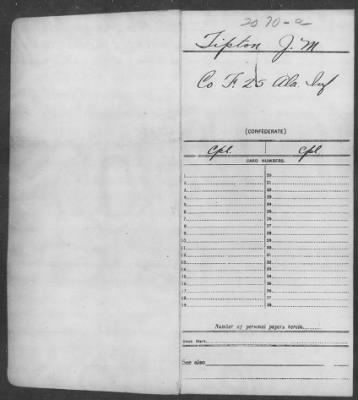 2070-a
Tipton J. M
Co F. 25 Ala. Inf
(CONFEDERATE)
Cpl. Cpl.
CARD NUMBERS.
1 20
2 21
3 22
4 23
5 24
6 25
7 26
8 27
9 28
10 29
11 30
12 31
13 32
14 33
15 34
16 35
17 36
18 37
19 38
Number of personal papers herein
Book Mark:
See also